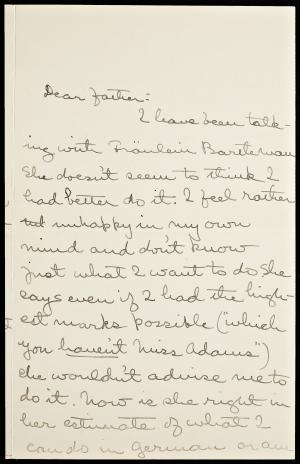 Dear Father:
I have been talk-
ing with Fräulein
she doesn't seem to think I
had better do it. I feel rather
unhappy in my own
mind and don't know
just what I want to do She
says even if I had the high-
est marks possible ("which
you haven't Miss Adams")
she wouldn't advise me to
do it. Now is she right in
her estimate of what I
can do in German or am